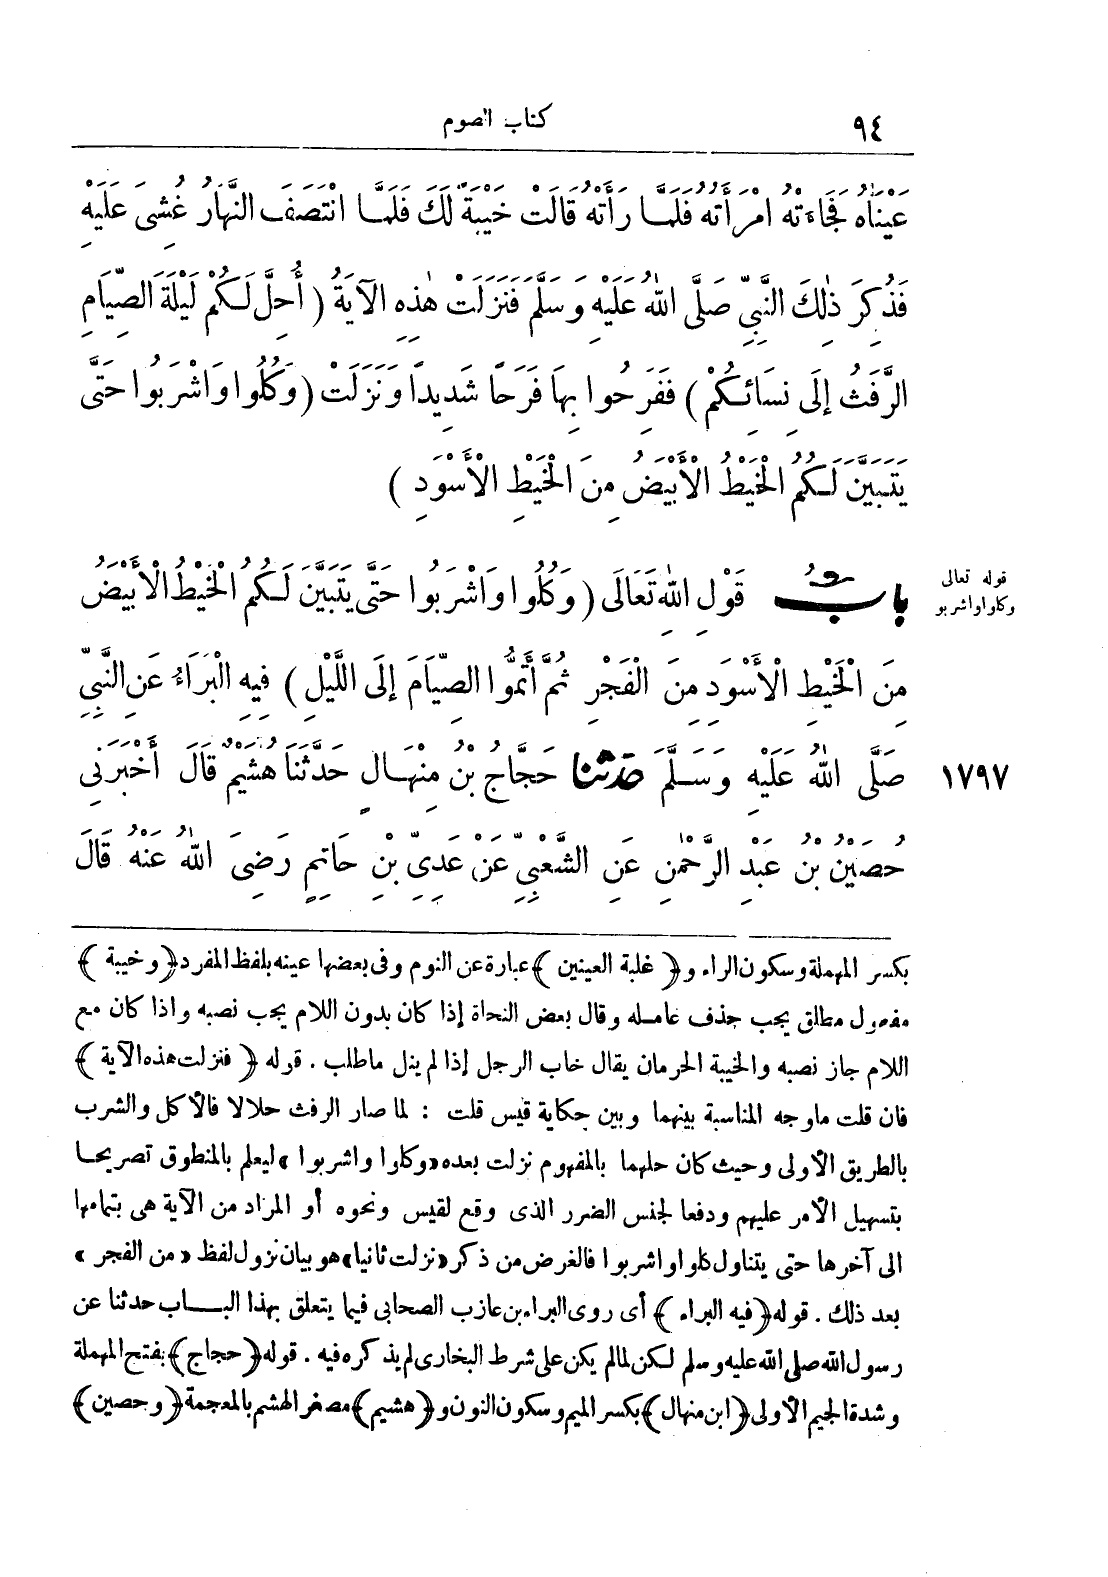 ٩٤ كتاب الصوم
عَيْنَاهُ فَجَاءَتْهُ امْرَأَتُهُ فَلَمَّا رَأَتْهُ قَالَتْ خَيْبَةً لَكَ فَلَمَّا انْتَصَفَ النَّهَارُ غُشِىَ عَلَيْهِ
فَذُكِرَ ذٰلِكَ النَّبِىِّ صَلَّى اللّٰهُ عَلَيْهِ وَسَلَّمَ فَنَزَلَتْ هٰذِهِ الآيَةُ ( أُحِلَّ لَكُمْ لَيْلَةَ الصِّيَامِ
الرَّفَثُ إِلَى نِسَائِكُمْ ) فَفَرِحُوا بِهَا فَرَحًا شَدِيدًا وَنَزَلَتْ ( وَكُلُوا وَاشْرَبُوا حَتَّى
يَتَبَيَّنَ لَكُمُ الْخَيْطُ الْأَبْيَضُ مِنَ الْخَيْطِ الْأَسْوَدِ )
بابُ قَوْلِ اللّٰهِ تَعَالَى ( وَكُلُوا وَاشْرَبُوا حَتَّى يَتَبَيَّنَ لَكُمُ الْخَيْطُ الْأَبْيَضُ
قوله تعالى
وكلوا واشربو
مِنَ الْخَيْطِ الْأَسْوَدِ مِنَ الْفَجْرِ ثُمَّ أَتِمُّوا الصِّيَامَ إِلَى اللَّيْلِ ) فِيهِ الْبَرَاءُ عَنِ النَّبِىِّ
صَلَّى اللّٰهُ عَلَيْهِ وَسَلَّمَ حَدَّثَنَا حَجَّاجُ بْنُ مِنْهَالٍ حَدَّثَنَا هُشَيْمٌ قَالَ أَخْبَرَنِى
١٧٩٧
حُصَيْنُ بْنُ عَبْدِ الرَّحْمٰنِ عَنِ الشَّعْبِىِّ عَنْ عَدِىِّ بْنِ حَاتِمٍ رَضِىَ اللّٰهُ عَنْهُ قَالَ
بكسر المهملة وسكون الراء و ﴿ غلبة العينين ﴾ عبارة عن النوم وفى بعضها عينه بلفظ المفرد ﴿ وخيبة ﴾
مفعول مطلق يجب حذف عامله وقال بعض النحاة إذا كان بدون اللام يجب نصبه واذا كان مع
اللام جاز نصبه والخيبة الحرمان يقال خاب الرجل إذا لم ينل ماطلب . قوله ﴿ فنزلت هذه الآية ﴾
فان قلت ماوجه المناسبة بينهما وبين حكاية قيس قلت : لما صار الرفث حلالا فالأكل والشرب
بالطريق الأولى وحيث كان حلهما بالمفهوم نزلت بعده «وكلوا واشربوا» ليعلم بالمنطوق تصريحا
بتسهيل الأمر عليهم ودفعا لجنس الضرر الذى وقع لقيس ونحوه أو المراد من الآية هى بتمامها
الى آخرها حتى يتناول كلوا واشربوا فالغرض من ذكر «نزلت ثانيا» هو بيان نزول لفظ « من الفجر »
بعد ذلك . قوله ﴿ فيه البراء ﴾ أى روى البراء بن عازب الصحابى فيما يتعلق بهذا الباب حدثنا عن
رسول الله صلى الله عليه وسلم لكن لمالم يكن على شرط البخارى لم يذكره فيه . قوله ﴿ حجاج ﴾ بفتح المهملة
وشدة الجيم الأولى ﴿ ابن منهال ﴾ بكسر الميم وسكون النون و ﴿ هشيم ﴾ مصغر الهشم بالمعجمة ﴿ وحصين ﴾